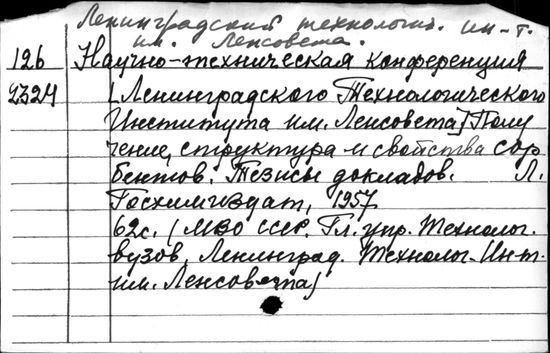 Ленинградский технологич. ин-т.
им. Ленсовета.
126 Научно-техническая конференция
2324 [Ленинградского Технологического
Института им. Ленсовета] Полу
чение, структура и свойства сор
бентов. Тезисы докладов. Л.
Госхимиздат, 1957
62с. (МВО СССР. Гл. упр. Технолог.
вузов. Ленинград. Технолог. Инт.
им. Ленсовета)